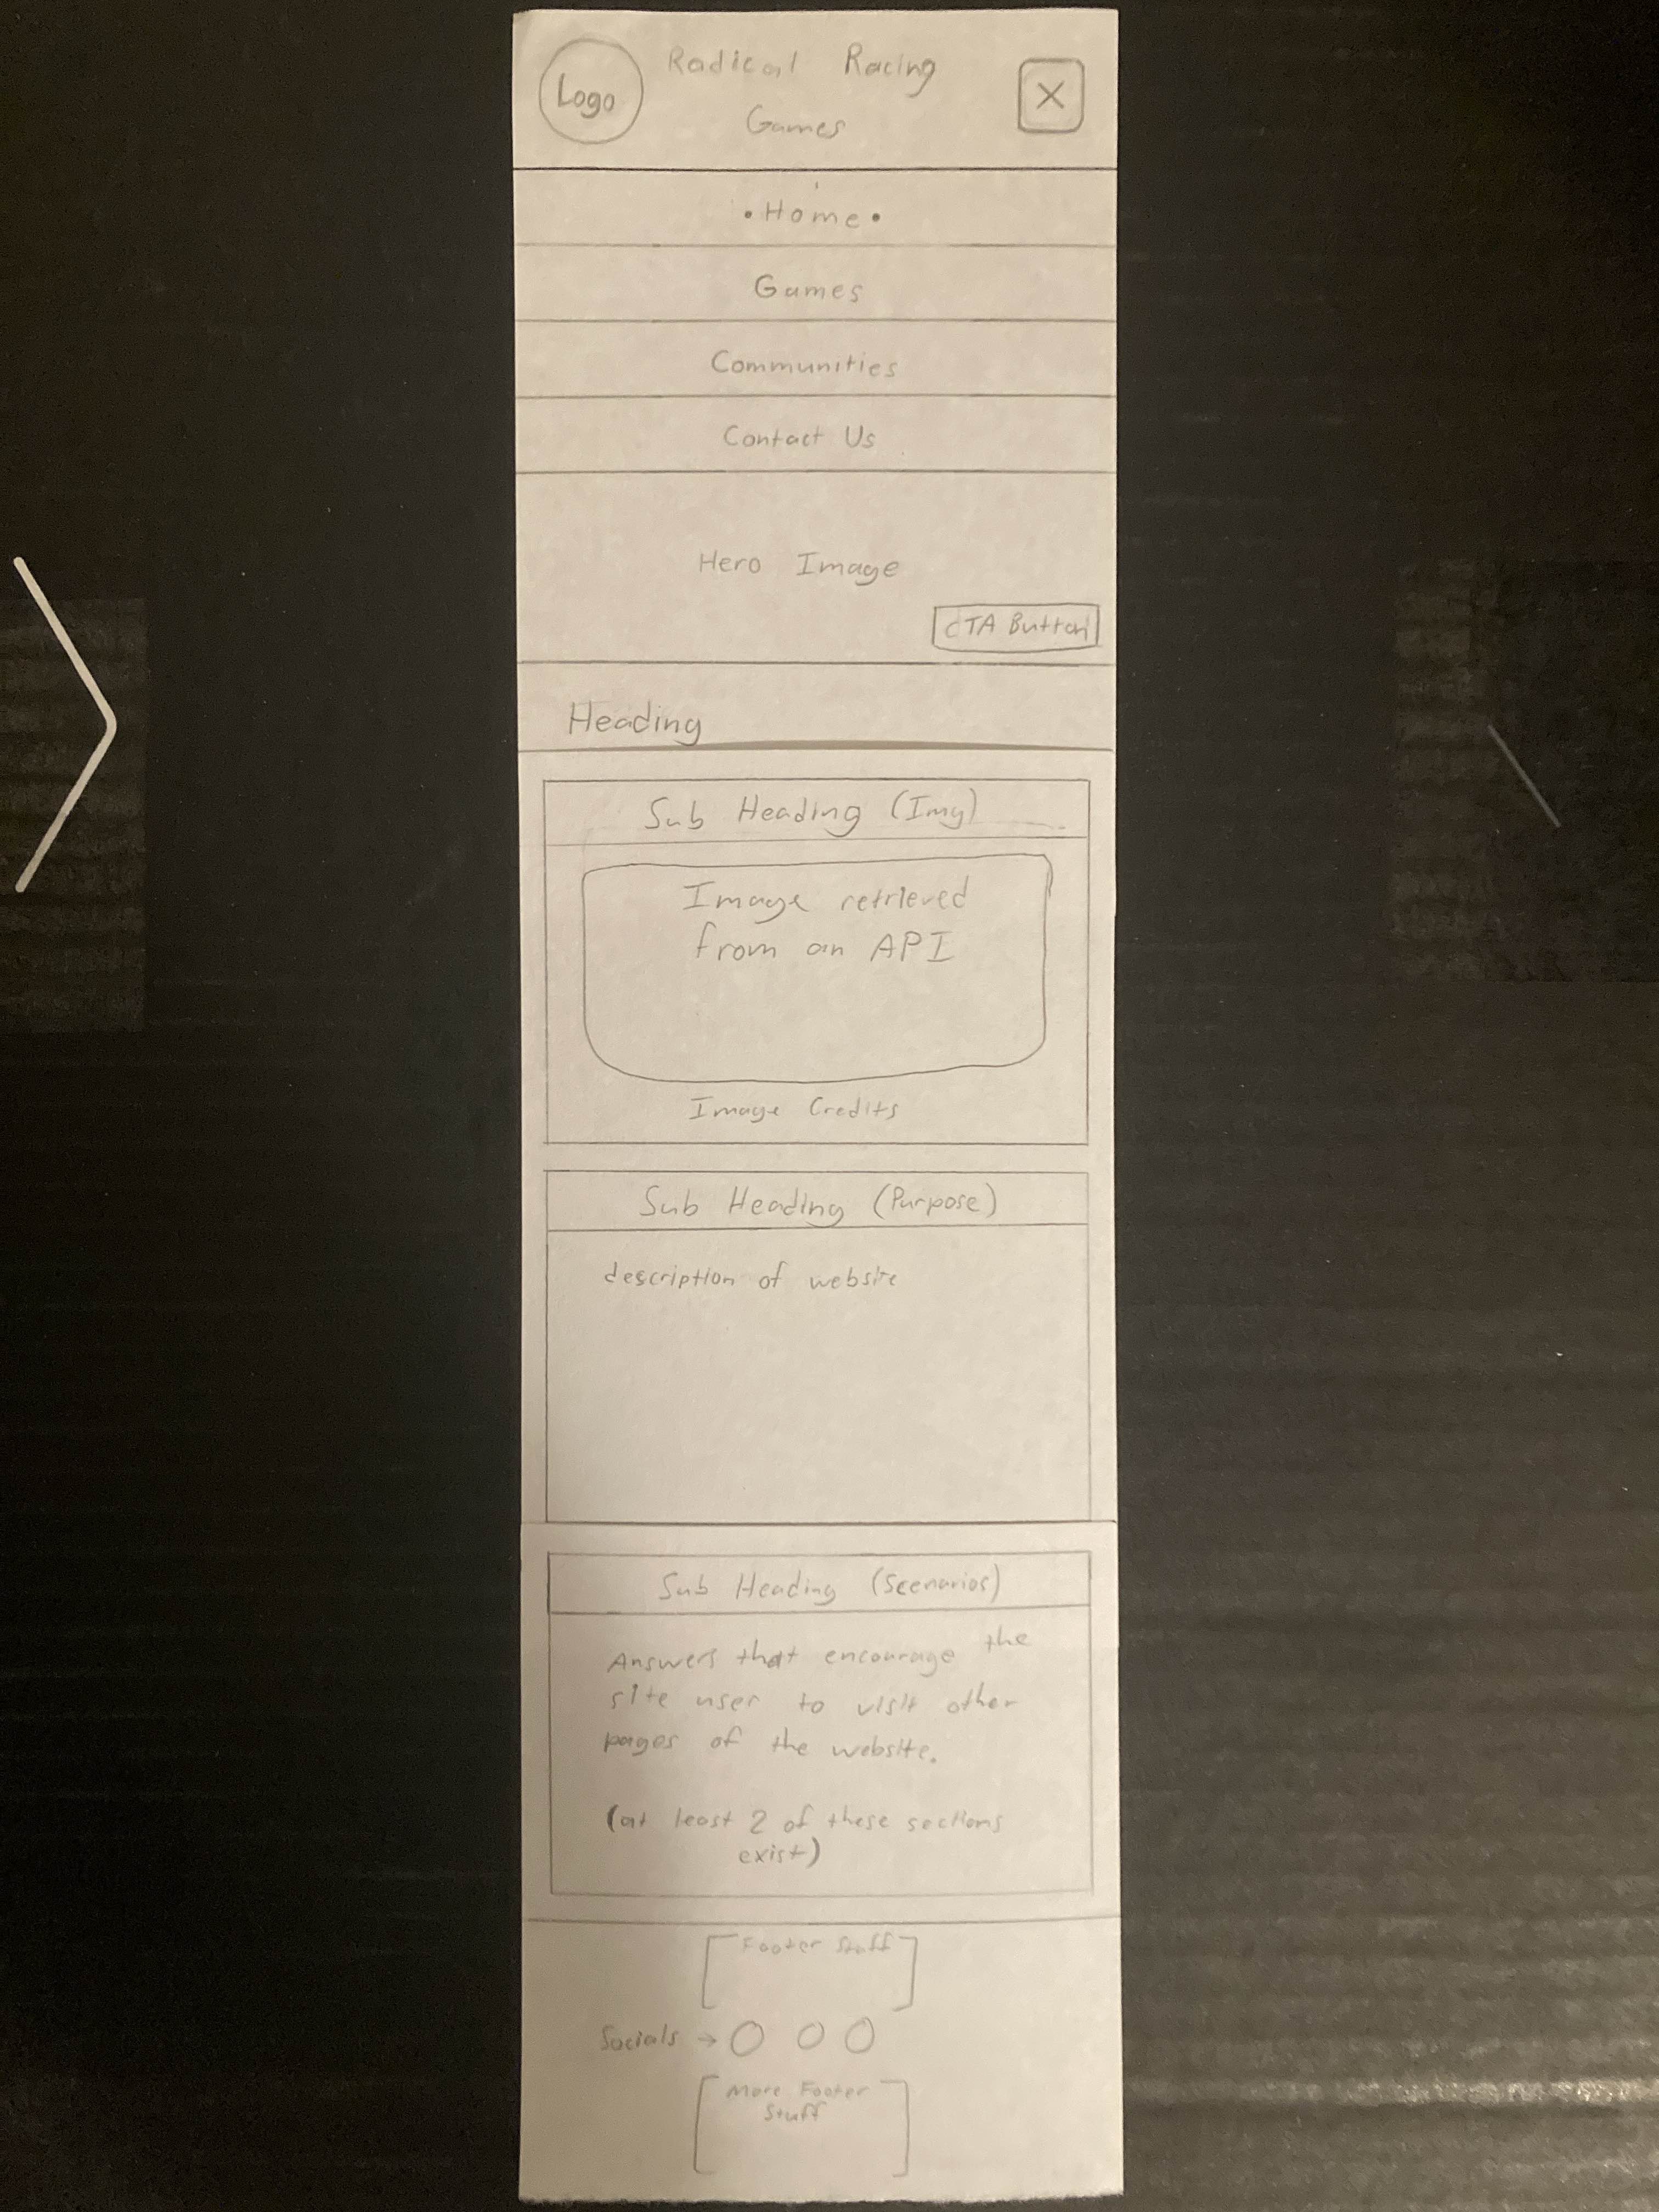 Logo
Radical Racing
Games
X
• Home •
Games
Communities
Contact Us
Hero Image
CTA Button
Heading
Sub Heading (Img)
Image retrieved
from an API
Image Credits
Sub Heading (Purpose)
description of website
Sub Heading (Scenarios)
Answers that encourage the
site user to visit other
pages of the website.
(at least 2 of these sections
exist)
Footer Stuff
Socials →
More Footer
Stuff